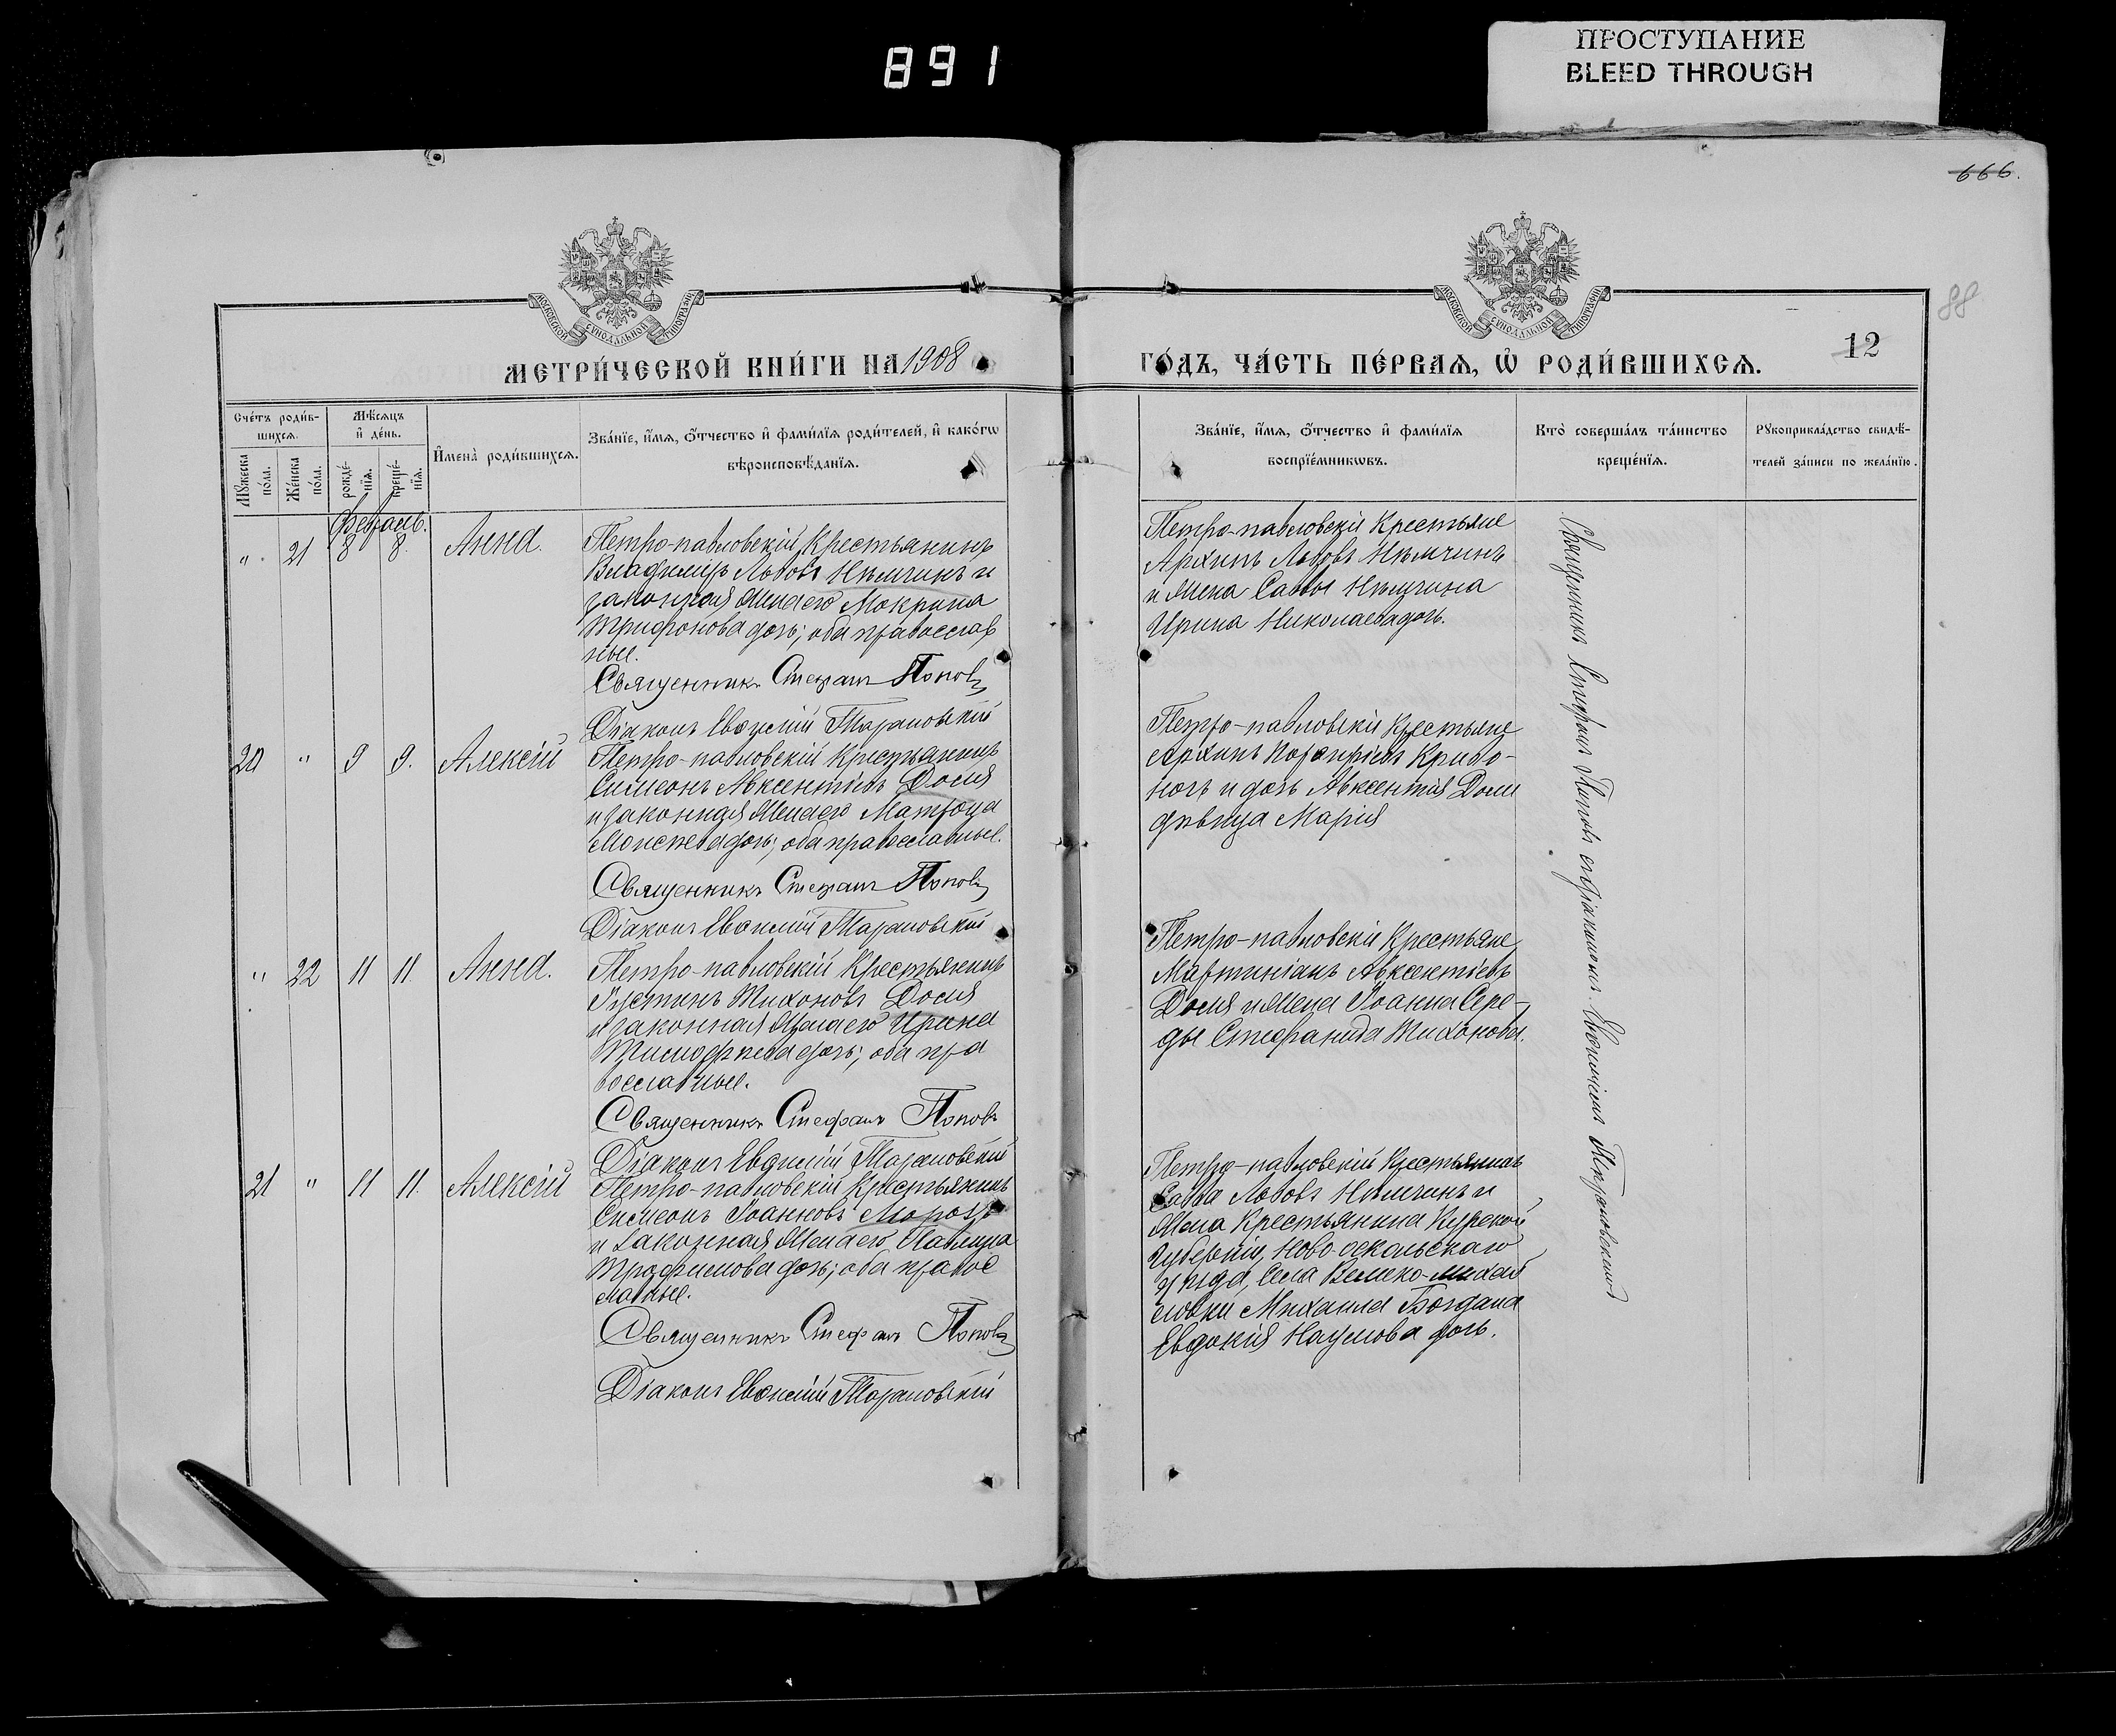 891
ПРОСТУПАНИЕ
BLEED THROUGH
666.
88
МОСКОВСКОЙ СѴНОДАЛЬНОЙ ТИПОГРАФІИ
МОСКОВСКОЙ СѴНОДАЛЬНОЙ ТИПОГРАФІИ
МЕТРИ́ЧЕСКОЙ КНИ́ГИ НА 1908
ГО́ДЪ, ЧА́СТЬ ПЕ́РВАѦ, Ѡ҆ РОДИ́ВШИХСѦ.
12
Сче́тъ роди́в-
шихсѧ.
Мѣ́сѧцъ
и҆ де́нь.
Мꙋ́жеска
по́ла.
Же́нска
по́ла.
рожде́-
нїѧ.
креще́-
нїѧ.
И҆мена̀ роди́вшихсѧ.
Зва́нїе, и҆́мѧ, ѻ҆́тчество и҆ фами́лїѧ роди́телей, и҆ како́гѡ
вѣроисповѣ́данїѧ.
Зва́нїе, и҆́мѧ, ѻ҆́тчество и҆ фами́лїѧ
воспрїе́мникѡвъ.
Кто̀ соверша́лъ та́инство
креще́нїѧ.
Рꙋкоприкла́дство свидѣ́-
телей за́писи по жела́нїю.
Февраль.
". 21 8 8. Анна.
Петро-павловскій Крестьянинъ
Владиміръ Львовъ Нѣмчинъ и
законная Жена его Мокрина
Трифонова дочь; оба православ
ные.
Священникъ Стефанъ Поповъ
Діаконъ Евѳимій Тарановскій
Петро-павловскіи Крестьяне
Архипъ Львовъ Нѣмчинъ
и Жена Саввы Нѣмчина
Ирина Николаева дочь.
20 " 9 9. Алексій
Петро-павловскій Крестьянинъ
Симеонъ Авксентіевъ Доля
и законная Жена его Матрона
Моисеева дочь; оба православные.
Священникъ Стефанъ Поповъ
Діаконъ Евѳимій Тарановскій
Петро-павловскіи Крестьяне
Архипъ Порфиріевъ Криво-
ногъ и дочь Авксентія Доли
дѣвица Марія
" 22 11 11. Анна.
Петро-павловскій Крестьянинъ
Іустинъ Тихоновъ Доля
и законная Жена его Ирина
Тимофеева дочь; оба пра
вославные.
Священникъ Стефанъ Поповъ
Діаконъ Евѳимій Тарановскій
Петро-павловскіи Крестьяне
Мартиніанъ Авксентіевъ
Доля и Жена Іоанна Сере-
ды Стефанида Тихонова.
21 " 11 11. Алексій
Петро-павловскій Крестьянинъ
Симеонъ Іоанновъ Морозъ
и Законная Жена его Павлина
Трофимова дочь; оба правос
лавные.
Священникъ Стефанъ Поповъ
Діаконъ Евѳимій Тарановскій
Петро-павловскій Крестьянинъ
Савва Львовъ Нѣмчинъ и
Жена Крестьянина Курской
Губерніи, Ново-оскольскаго
уѣзда, Села Велико-михай
ловки Михаила Богдана
Евдокія Наумова дочь.
Священникъ Стефанъ Поповъ съ діакономъ Евѳиміемъ Тарановскимъ